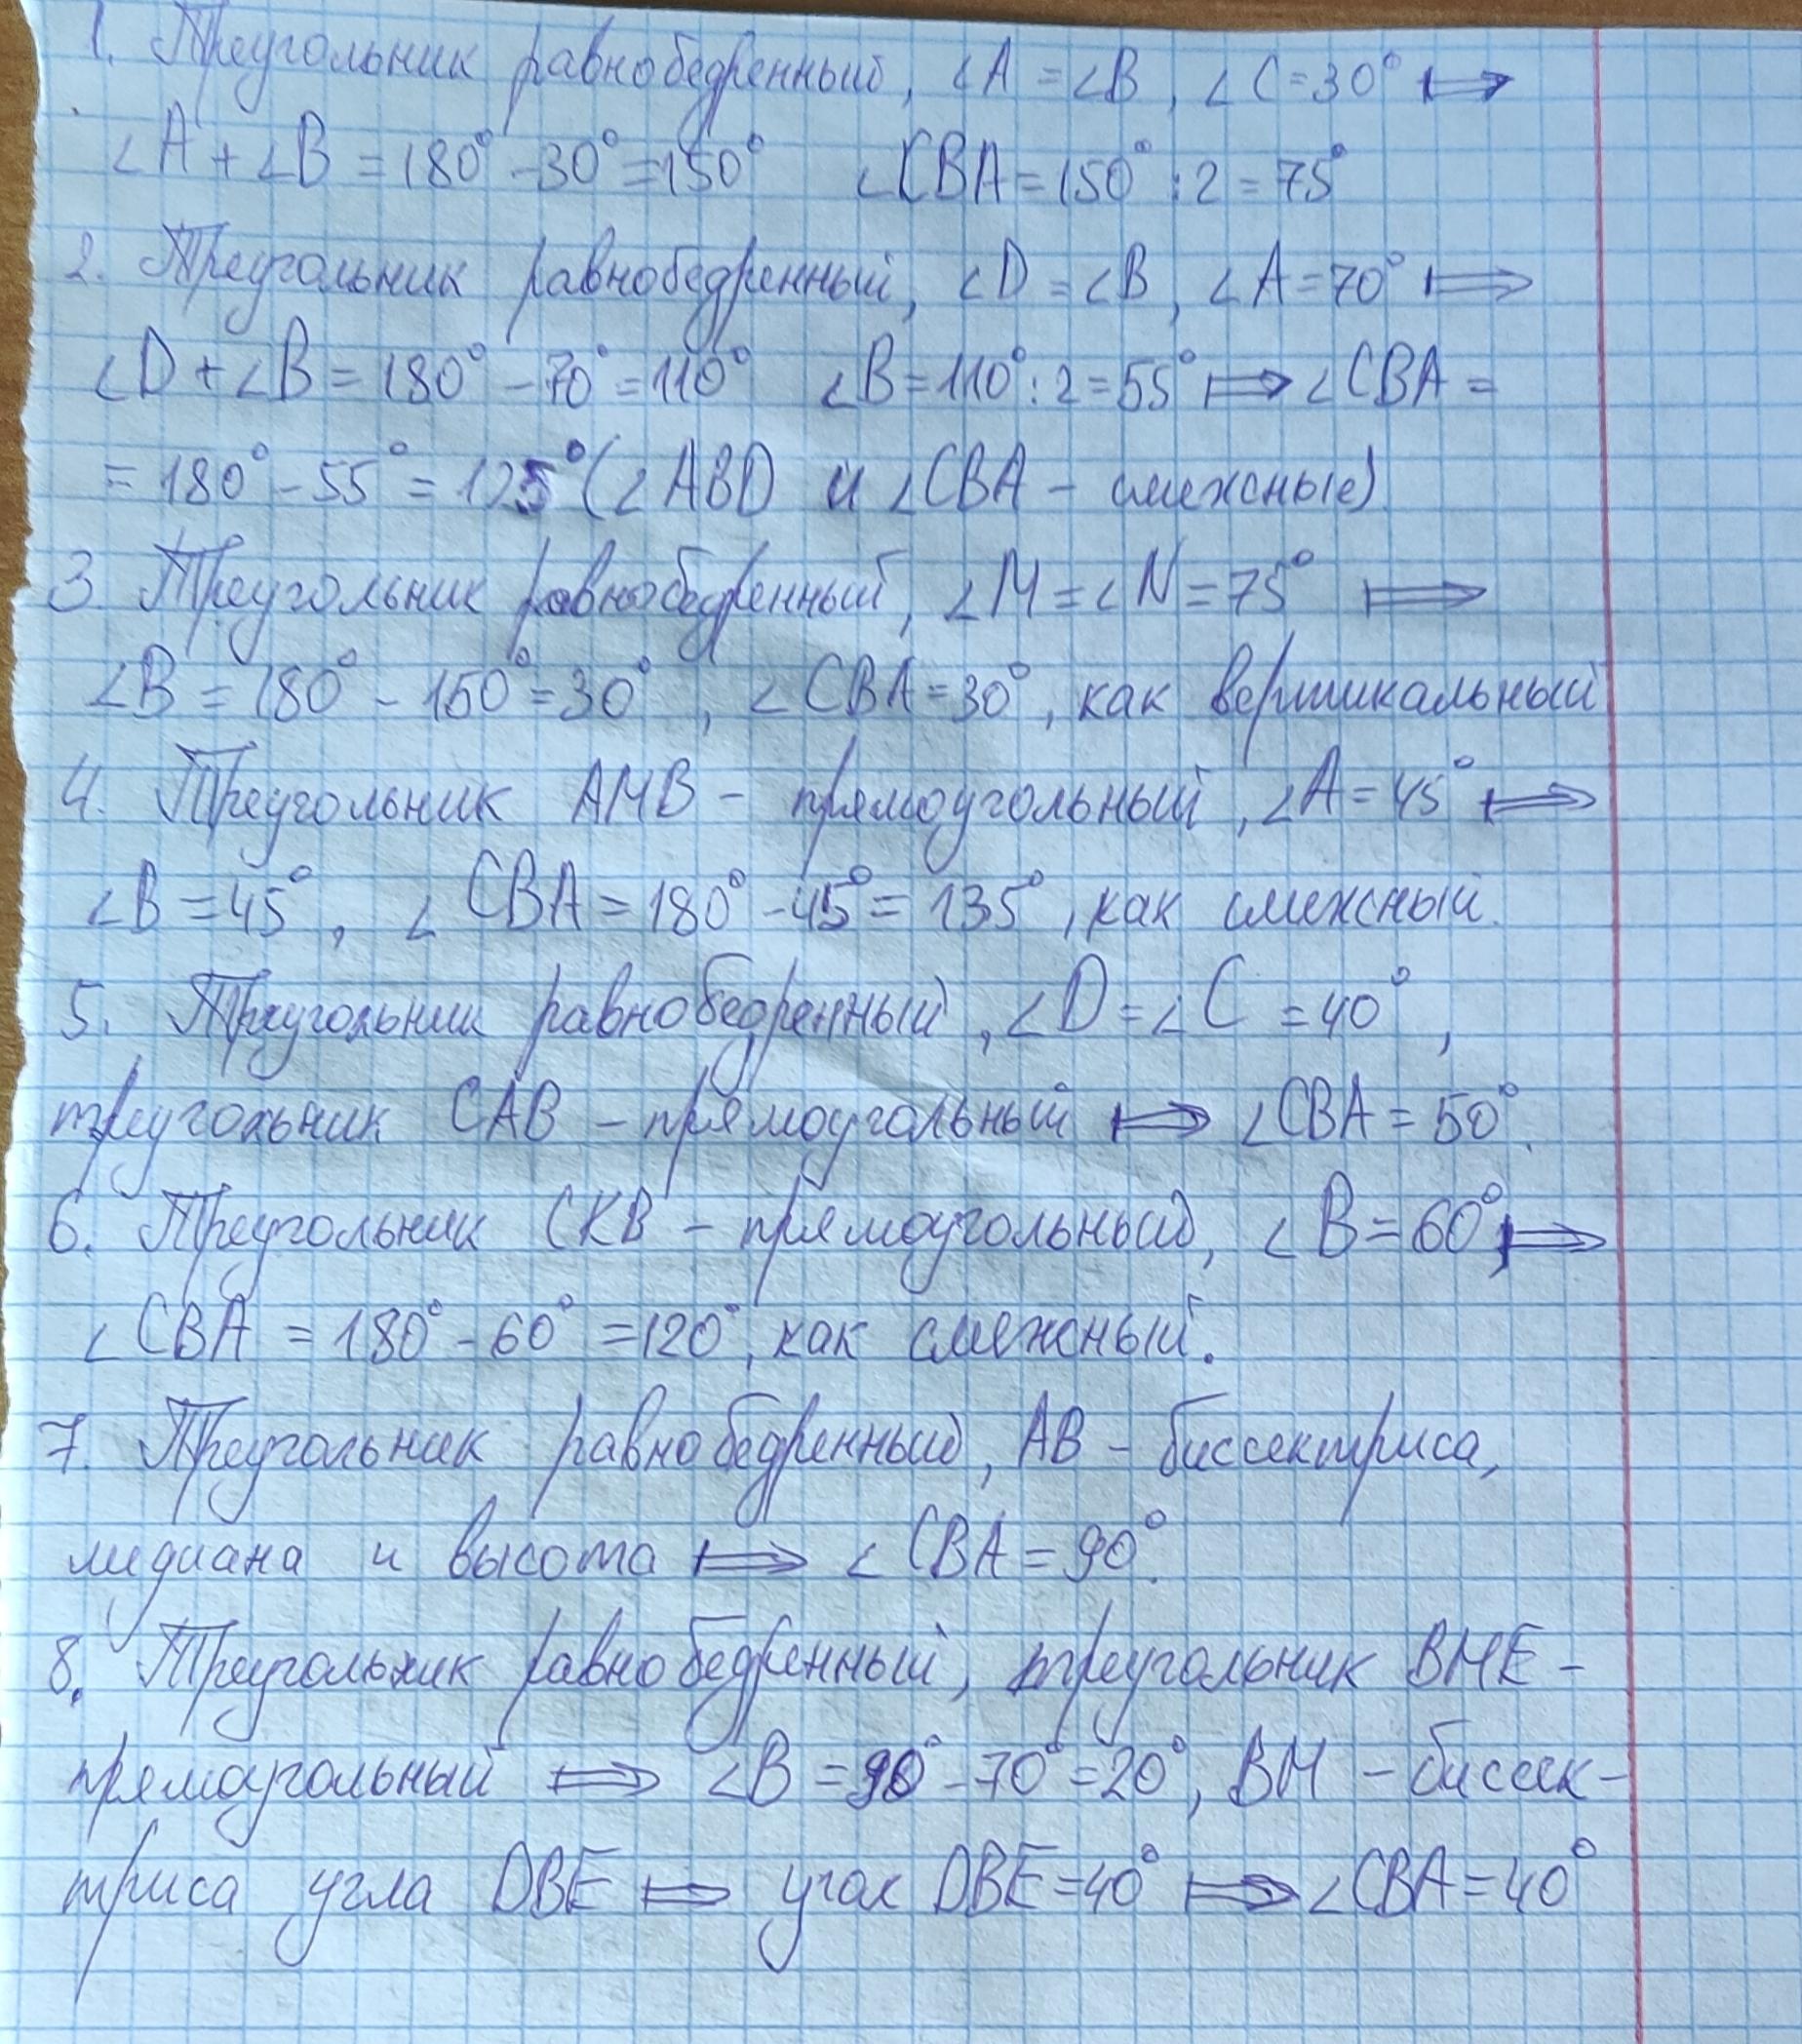 1. Треугольник равнобедренный, ∠A = ∠B, ∠C = 30° ⟹
∠A + ∠B = 180° - 30° = 150° ∠CBA = 150° : 2 = 75°
2. Треугольник равнобедренный, ∠D = ∠B, ∠A = 70° ⟹
∠D + ∠B = 180° - 70° = 110° ∠B = 110° : 2 = 55° ⟹ ∠CBA =
= 180° - 55° = 125° (∠ABD и ∠CBA - смежные)
3. Треугольник равнобедренный, ∠M = ∠N = 75° ⟹
∠B = 180° - 150° = 30°, ∠CBA = 30°, как вертикальный
4. Треугольник AMB - прямоугольный, ∠A = 45° ⟹
∠B = 45°, ∠CBA = 180° - 45° = 135°, как смежный.
5. Треугольник равнобедренный, ∠D = ∠C = 40°,
треугольник CAB - прямоугольный ⟹ ∠CBA = 50°.
6. Треугольник CKB - прямоугольный, ∠B = 60° ⟹
∠CBA = 180° - 60° = 120°, как смежный.
7. Треугольник равнобедренный, AB - биссектриса,
медиана и высота ⟹ ∠CBA = 90°.
8. Треугольник равнобедренный, треугольник BME -
прямоугольный ⟹ ∠B = 90° - 70° = 20°, BM - биссек-
триса угла DBE ⟹ угол DBE = 40° ⟹ ∠CBA = 40°